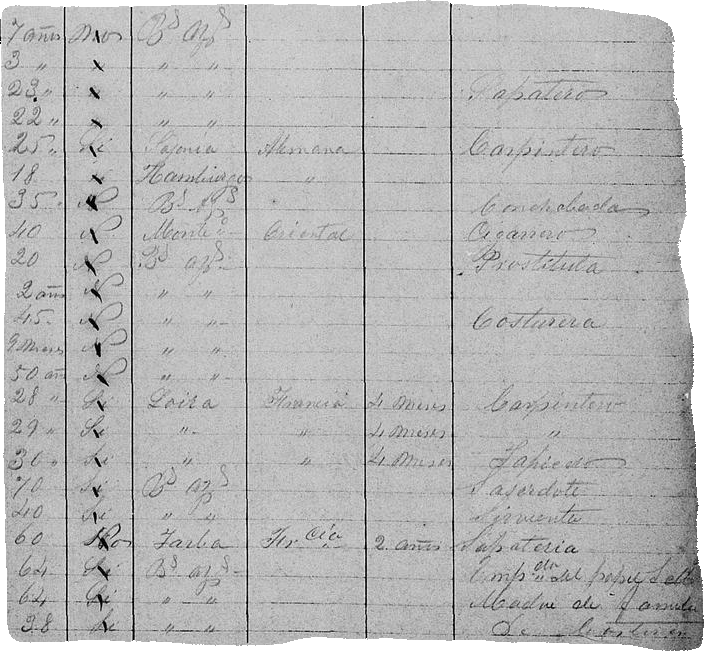 7 años No Bs Ays
3 " " "
23 " " " Zapatero
22 " " "
25 " Si Sajonia Alemana Carpintero
18 Si Hamburgo "
35 N Bs Ays Conchabada
40 N Montevo Oriental Cigarrero
20 N Bs Ays Prostituta
2 años N " "
45 N " " Costurera
9 Meses N " "
50 añ N " "
28 " Si Loira Francia 4 Meses Carpintero
29 " Si " " 4 Meses "
30 " Si " " 4 Meses Tapicero
70 Si Bs Ays Saserdote
40 Si " " Sirviente
60 No Tarba Frcia 2 años Sapateria
64 Si Bs Ays Empdo del papel
64 Si " " Madre de familia
38 Si " " De